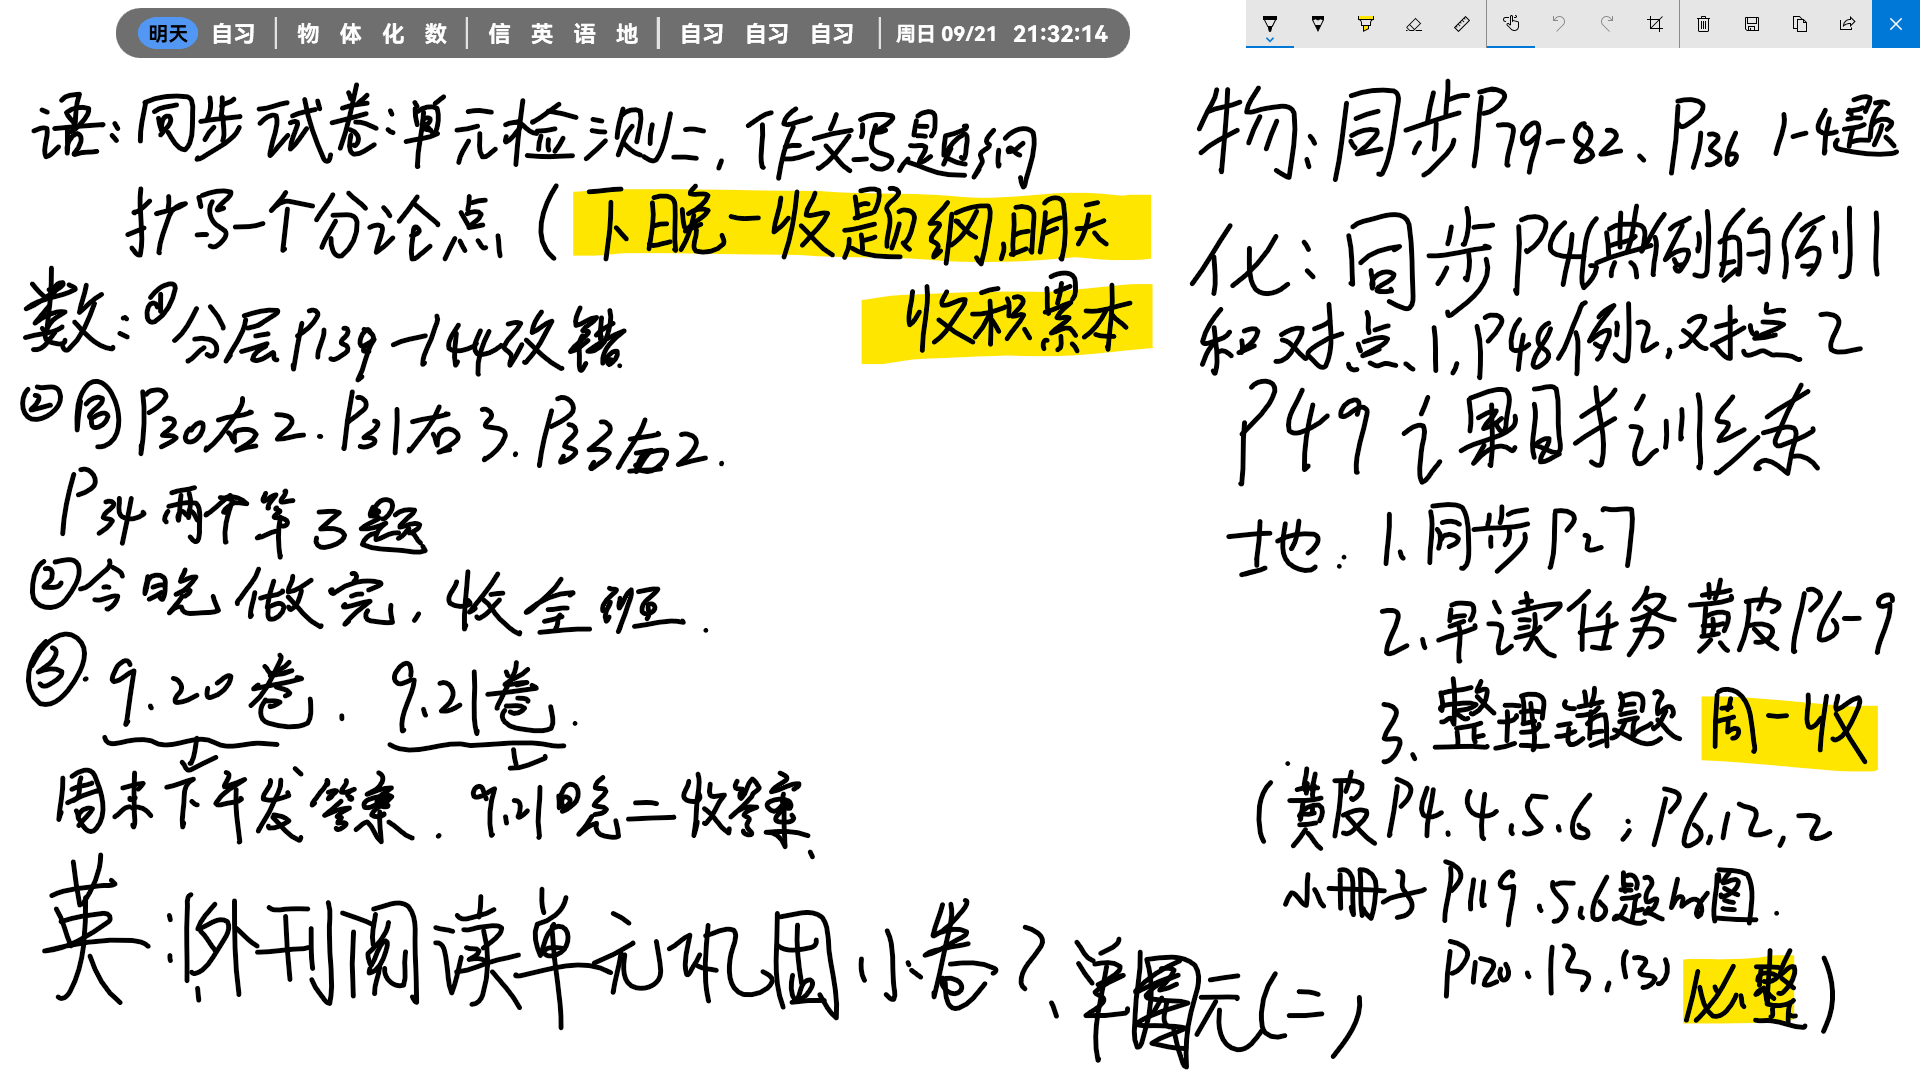 明天 自习 | 物 体 化 数 | 信 英 语 地 | 自习 自习 自习 | 周日 09/21 21:32:14
语:同步试卷:单元检测二,作文写题纲
抄写一个分论点(下晚一收题纲,明天
收积累本
数:①分层P139-144改错.
②同P30右2.P31右3.P33右2.
P34两个第3题
②今晚做完,收全班.
③.9.20卷.9.21卷.
周末下午发答案.9.21晚二收答案.
英:1.外刊阅读单元巩固小卷2.单元(二)
物:同步P79-82、P136 1-4题
化:同步P46典例的例1
和对点、1,P48例2,对点2
P49课时训练
地:1、同步P27
2、早读任务黄皮P6-9
3、整理错题 周一收
(黄皮P4.4.5.6;P6,12,2
小册子P119.5.6题的图.
P120.13,(3)必整)